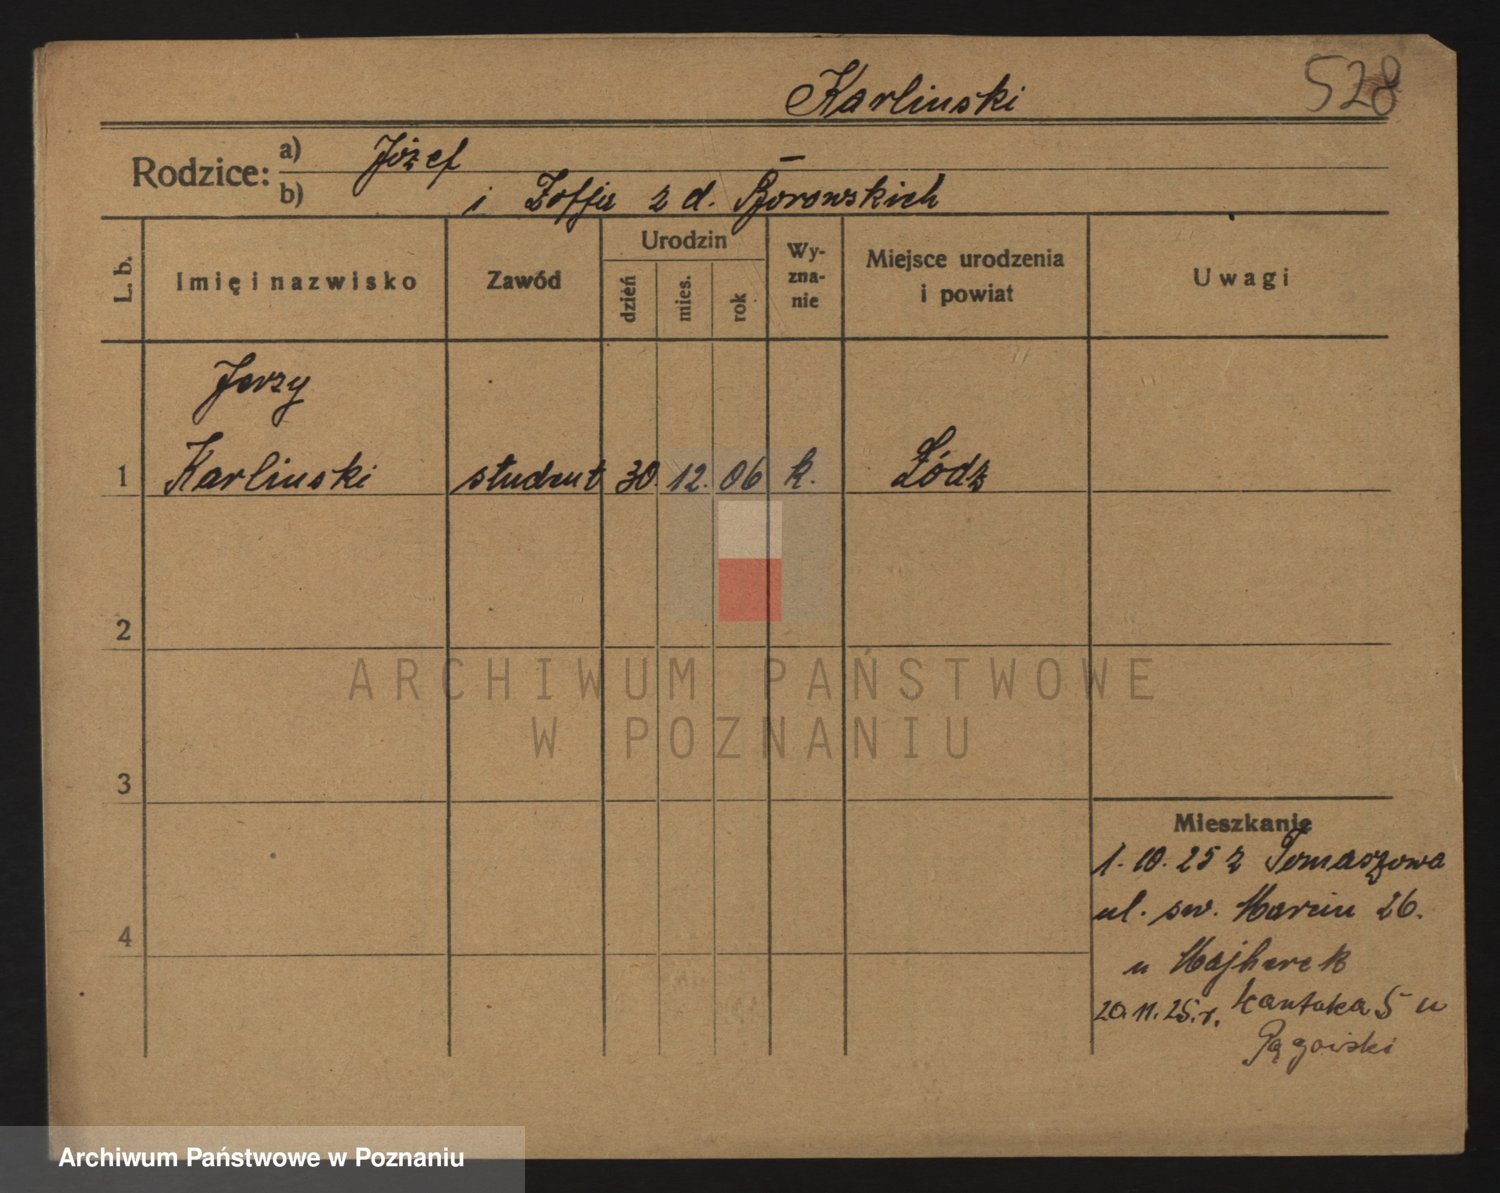 Karlinski 528
Rodzice: a) Józef —
b) i Zofja z d. Borowskich
L. b. Imię i nazwisko Zawód Urodzin dzień mies. rok Wy-zna-nie Miejsce urodzenia i powiat Uwagi
Jerzy
1 Karlinski student 30. 12. 06 k. Łódz
2
3
4
Mieszkanie
1. 10. 25 z Tomaszowa
ul. sw. Marcin 26.
u Majherek
20. 11. 25. r. Kantaka 5 u
ARCHIWUM PAŃSTWOWE
W POZNANIU
Archiwum Państwowe w Poznaniu